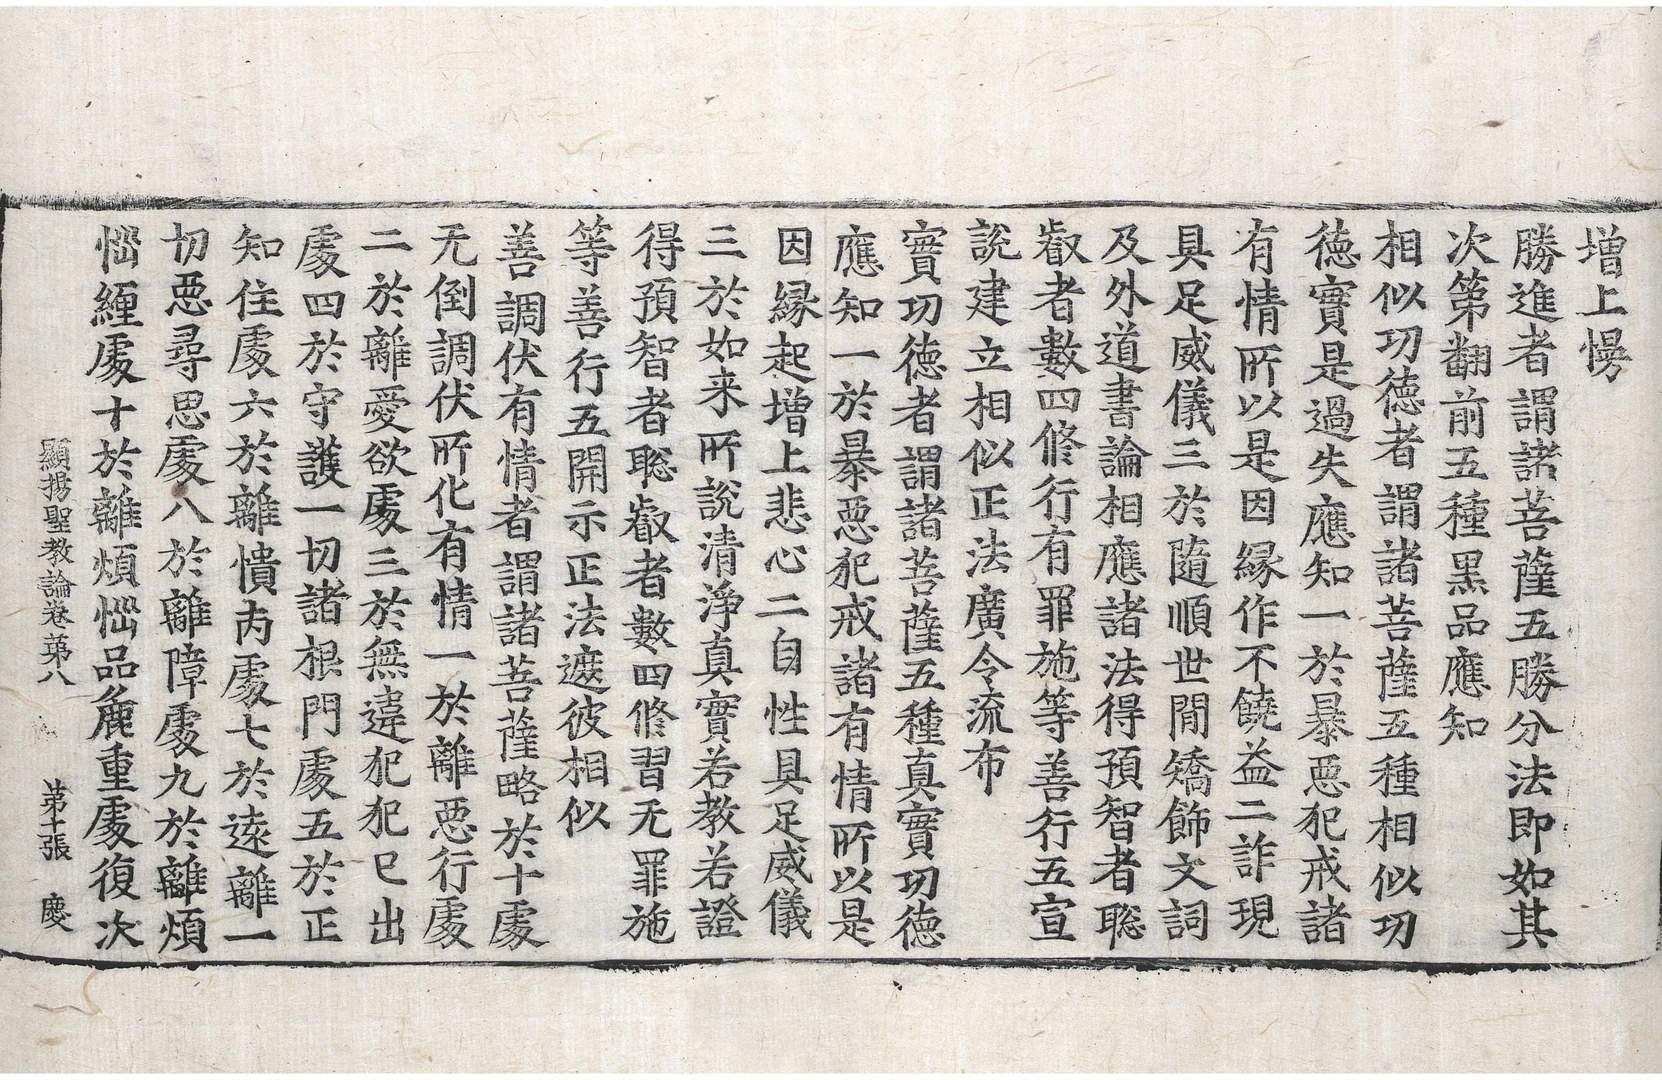 增上慢
勝進者謂諸菩薩五勝分法即如其
次第翻前五種黑品應知
相似功德者謂諸菩薩五種相似功
德實是過失應知一於暴惡犯戒諸
有情所以是因緣作不饒益二詐現
具足威儀三於隨順世間矯飾文詞
及外道書論相應諸法得預智者聡
叡者數四修行有罪施等善行五宣
說建立相似正法廣令流布
實功德者謂諸菩薩五種真實功德
應知一於暴惡犯戒諸有情所以是
因緣起增上悲心二自性具足威儀
三於如来所說清淨真實若教若證
得預智者聡叡者數四修習无罪施
等善行五開示正法遮彼相似
善調伏有情者謂諸菩薩略於十處
无倒調伏所化有情一於離惡行處
二於離愛欲處三於無違犯犯已出
處四於守護一切諸根門處五於正
知住處六於離憒丙處七於遠離一
切惡尋思處八於離障處九於離煩
惱纏處十於離煩惱品麁重處復次
顯揚聖教論卷第八 第十張 慶